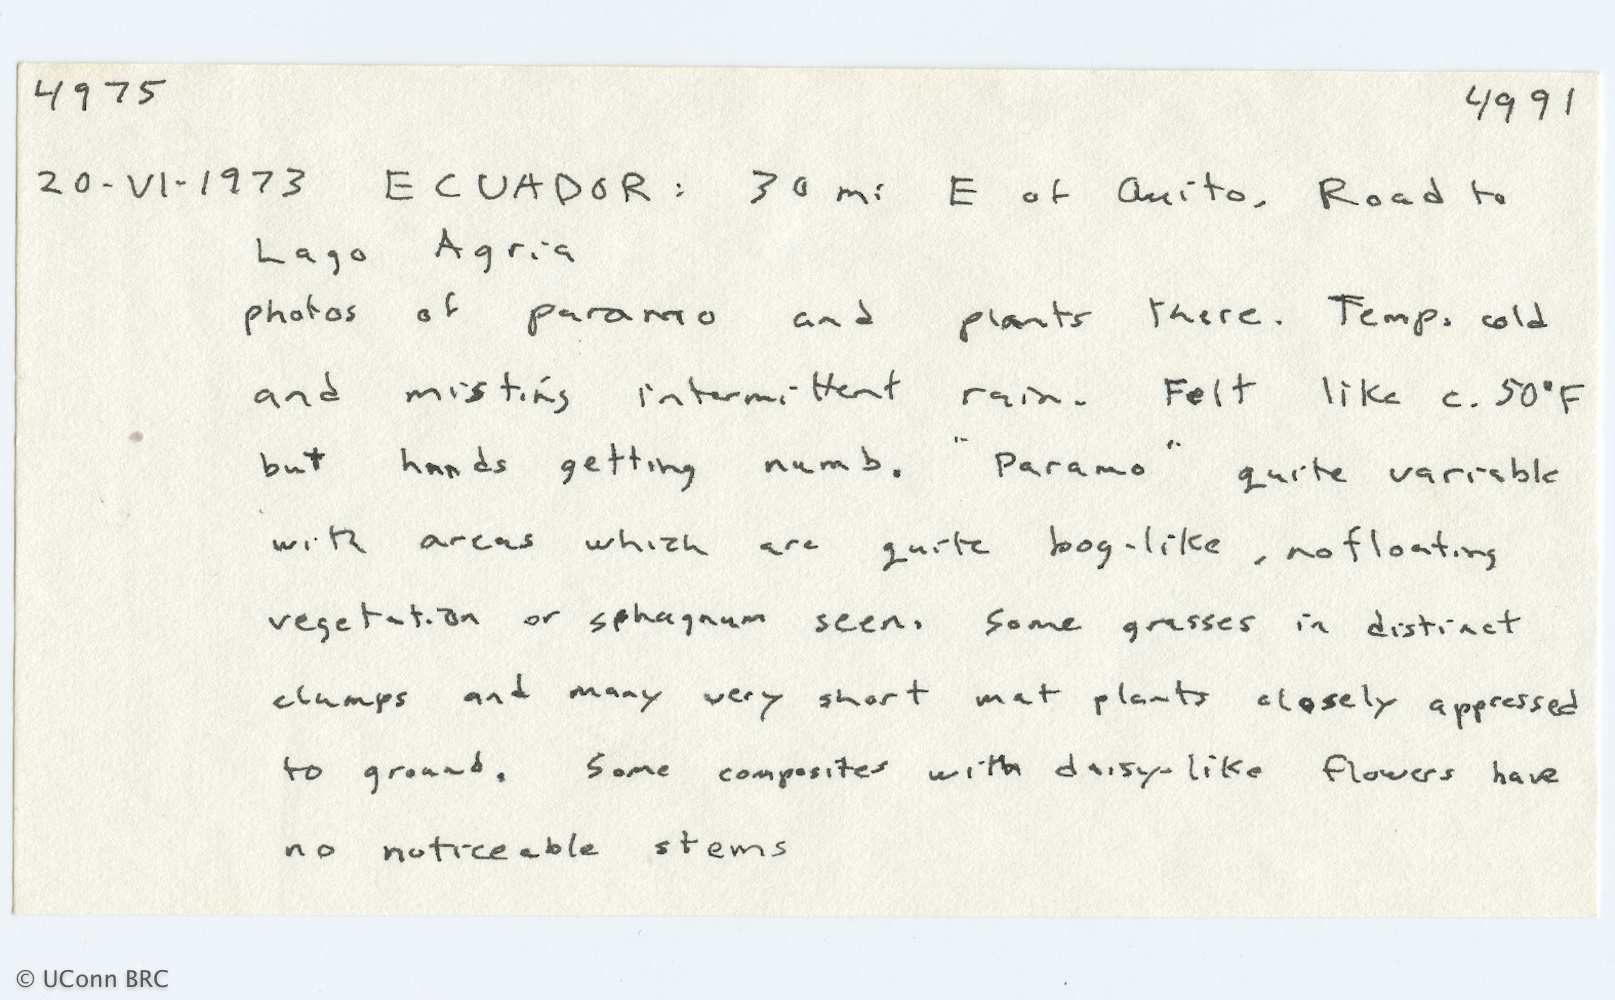 4975 4991
20-VI-1973 ECUADOR: 30 mi E of Quito. Road to
Lago Agria
photos of paramo and plants there. Temp. cold
and misting intermittent rain. Felt like c. 50°F
but hands getting numb. "Paramo" quite variable
with areas which are quite bog-like, no floating
vegetation or sphagnum seen. Some grasses in distinct
clumps and many very short mat plants closely appressed
to ground. Some composites with daisy-like flowers have
no noticeable stems
© UConn BRC